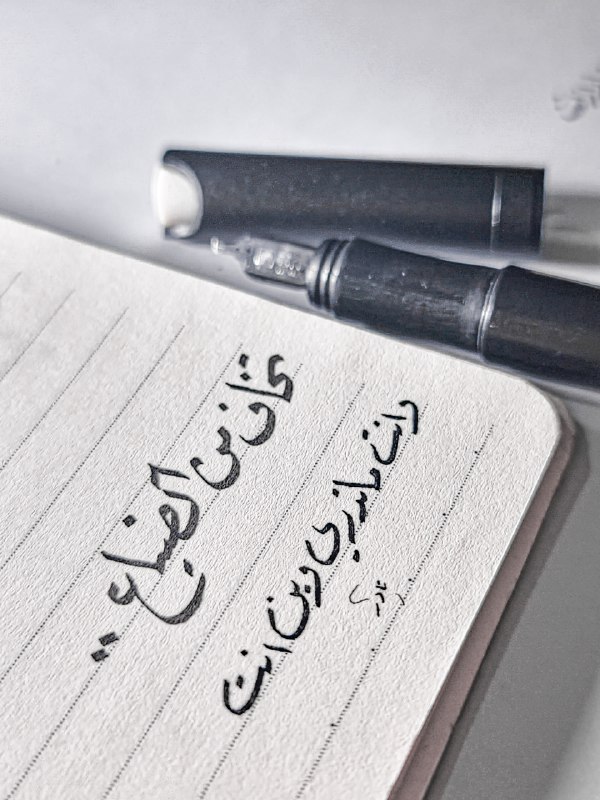 تخاف من الضياع ..
وانت ماتدري وين انت